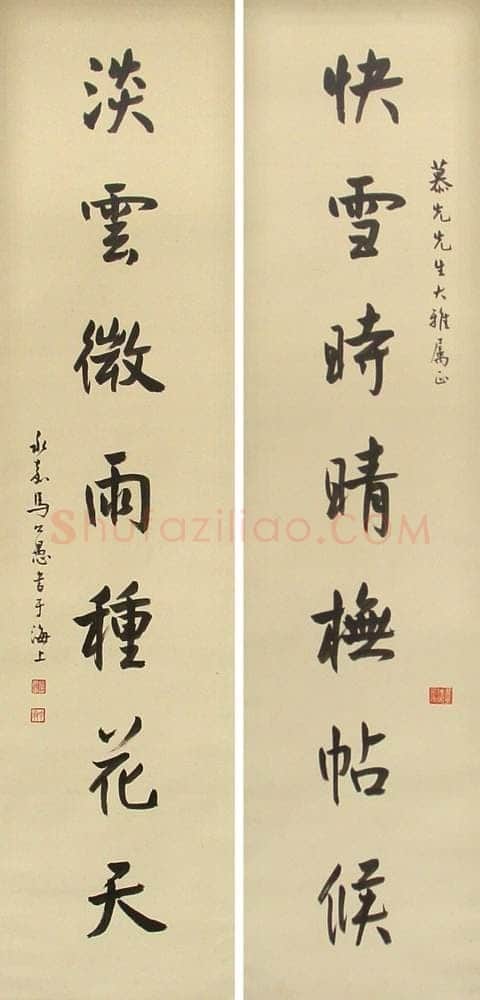 慕先先生大雅属正
快雪時晴橅帖候
淡雲微雨種花天
永嘉馬公愚書于海上
Shufaziliao.COM